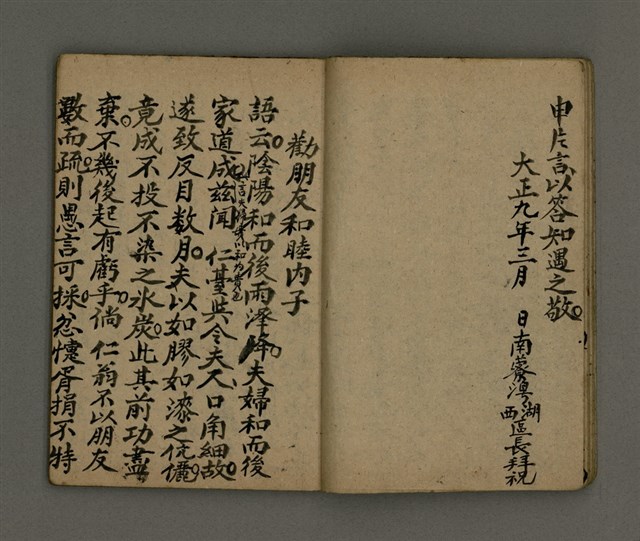 申片言以答知遇之敬。
大正九年三月　日南藔灣湖西區長拜祝
勸朋友和睦内子
語云。陰陽和而後雨澤降。夫婦和而後
家道成。茲聞　仁臺與令夫人口角細故。
遂致反目数月。夫以如膠如漆之伉儷。
竟成不投不染之氷炭。此其前功盡
棄。不幾後起有虧乎。倘　仁翁不以朋友
數而疏。則愚言可採。忿懥胥捐。不特